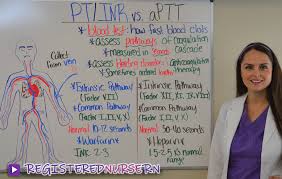 PT/INR vs. aPTT
* blood test: how fast blood clots
* assess pathways of coagulation cascade
* measured in seconds
* assess bleeding disorder
* Sometimes ordered therapy
Collect from vein
* Extrinsic Pathway
(Factor VII)
* Common Pathway
Normal 10-12 seconds
* Warfarin
INR: 2-3
* Intrinsic Pathway
* Common Pathway
Normal 30-40 seconds
* Heparin
1.5-2.5 x's normal range
REGISTEREDNURSERN